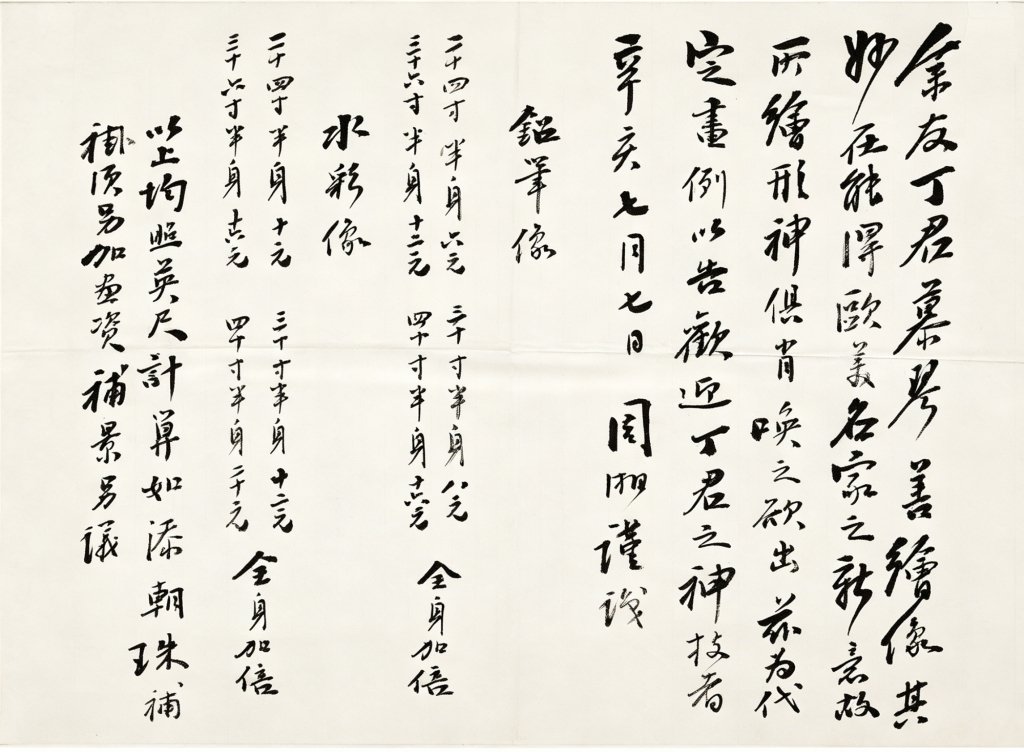 余友丁君慕琴善繪像其
妙在能得歐美名家之新意故
所繪形神俱肖喚之欲出茲為代
定畫例以告歡迎丁君之神技者
辛亥七月七日 周湘謹識
鉛筆像
二十四寸半身六元 三十寸半身八元
三十六寸半身十二元 四十寸半身十六元 全身加倍
水彩像
二十四寸半身十元 三十寸半身十二元
三十六寸半身十六元 四十寸半身二十元 全身加倍
以上均照英尺計算如添朝珠補
褂須另加畫資補景另議